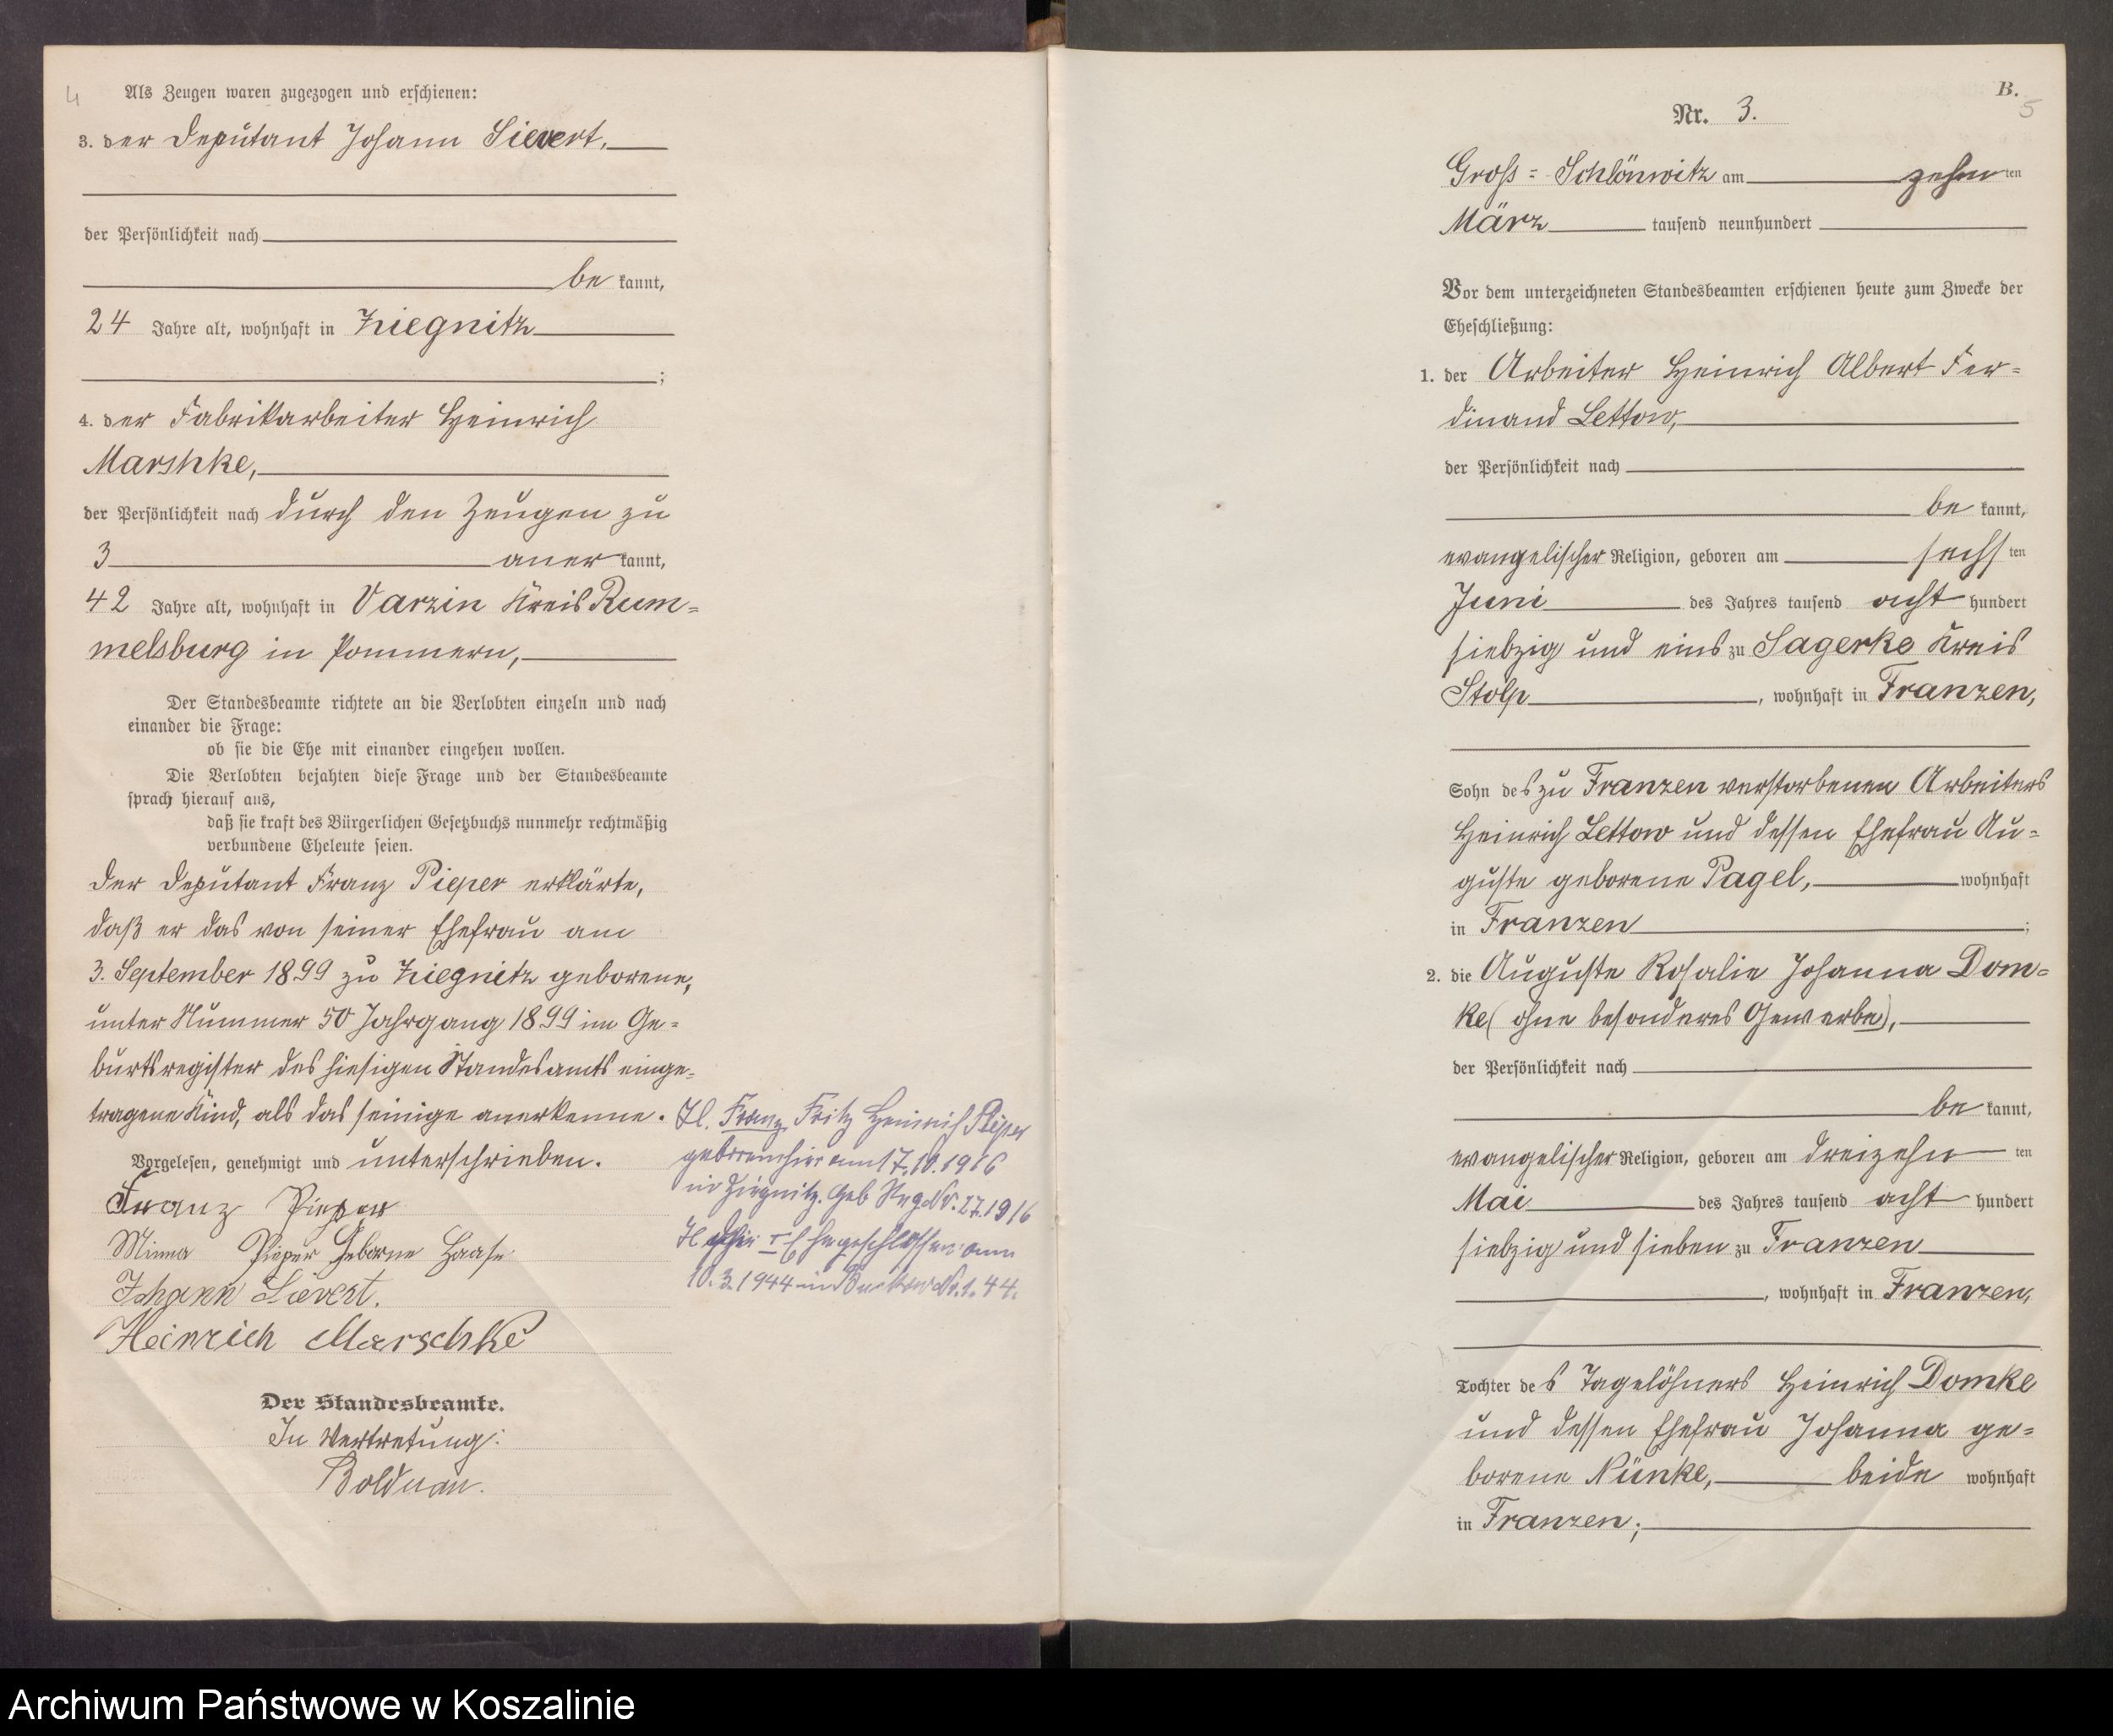 4
Als Zeugen waren zugezogen und erschienen:
3. der Deputant Johann Sievert,
der Persönlichkeit nach
be kannt,
24 Jahre alt, wohnhaft in Ziegnitz
;
4. der Fabrikarbeiter Heinrich
Marschke,
der Persönlichkeit nach durch den Zeugen zu
3 aner kannt,
42 Jahre alt, wohnhaft in Varzin Kreis Rum=
melsburg in Pommern,
Der Standesbeamte richtete an die Verlobten einzeln und nach
einander die Frage:
ob sie die Ehe mit einander eingehen wollen.
Die Verlobten bejahten diese Frage und der Standesbeamte
sprach hierauf aus,
daß sie kraft des Bürgerlichen Gesetzbuchs nunmehr rechtmäßig
verbundene Eheleute seien.
Der Deputant Franz Pieper erklärte,
daß er das von seiner Ehefrau am
3. September 1899 zu Ziegnitz geborene,
unter Nummer 50 Jahrgang 1899 im Ge=
burtsregister des hiesigen Standesamts einge=
tragene Kind, als das seinige anerkenne.
Vorgelesen, genehmigt und unterschrieben.
Franz Pieper
Minna Pieper geborne Haase
Johann Sievert.
Heinrich Marschke
Der Standesbeamte.
In Vertretung:
Bolduan.
Franz Fritz Heinrich Pieper
geboren hier am 17.10.1916
in Ziegnitz. Geb. Reg. Nr. 27.1916
Ehe geschlossen am
10.3.1944 in Nr. 1.44.
B.
5
Nr. 3.
Gross=Schlönwitz am zehn ten
März tausend neunhundert
Vor dem unterzeichneten Standesbeamten erschienen heute zum Zwecke der
Eheschließung:
1. der Arbeiter Heinrich Albert Fer=
dinand Lettow,
der Persönlichkeit nach
be kannt,
evangelischer Religion, geboren am sechs ten
Juni des Jahres tausend acht hundert
siebzig und eins zu Sagerke Kreis
Stolp, wohnhaft in Franzen,
Sohn des zu Franzen verstorbenen Arbeiters
Heinrich Lettow und dessen Ehefrau Au=
guste geborene Pagel, wohnhaft
in Franzen ;
2. die Auguste Rosalie Johanna Dom=
ke (ohne besonderes Gewerbe),
der Persönlichkeit nach
be kannt,
evangelischer Religion, geboren am dreizehn ten
Mai des Jahres tausend acht hundert
siebzig und sieben zu Franzen
, wohnhaft in Franzen,
Tochter des Tagelöhners Heinrich Domke
und dessen Ehefrau Johanna ge=
borene Nünke, beide wohnhaft
in Franzen;
Archiwum Państwowe w Koszalinie